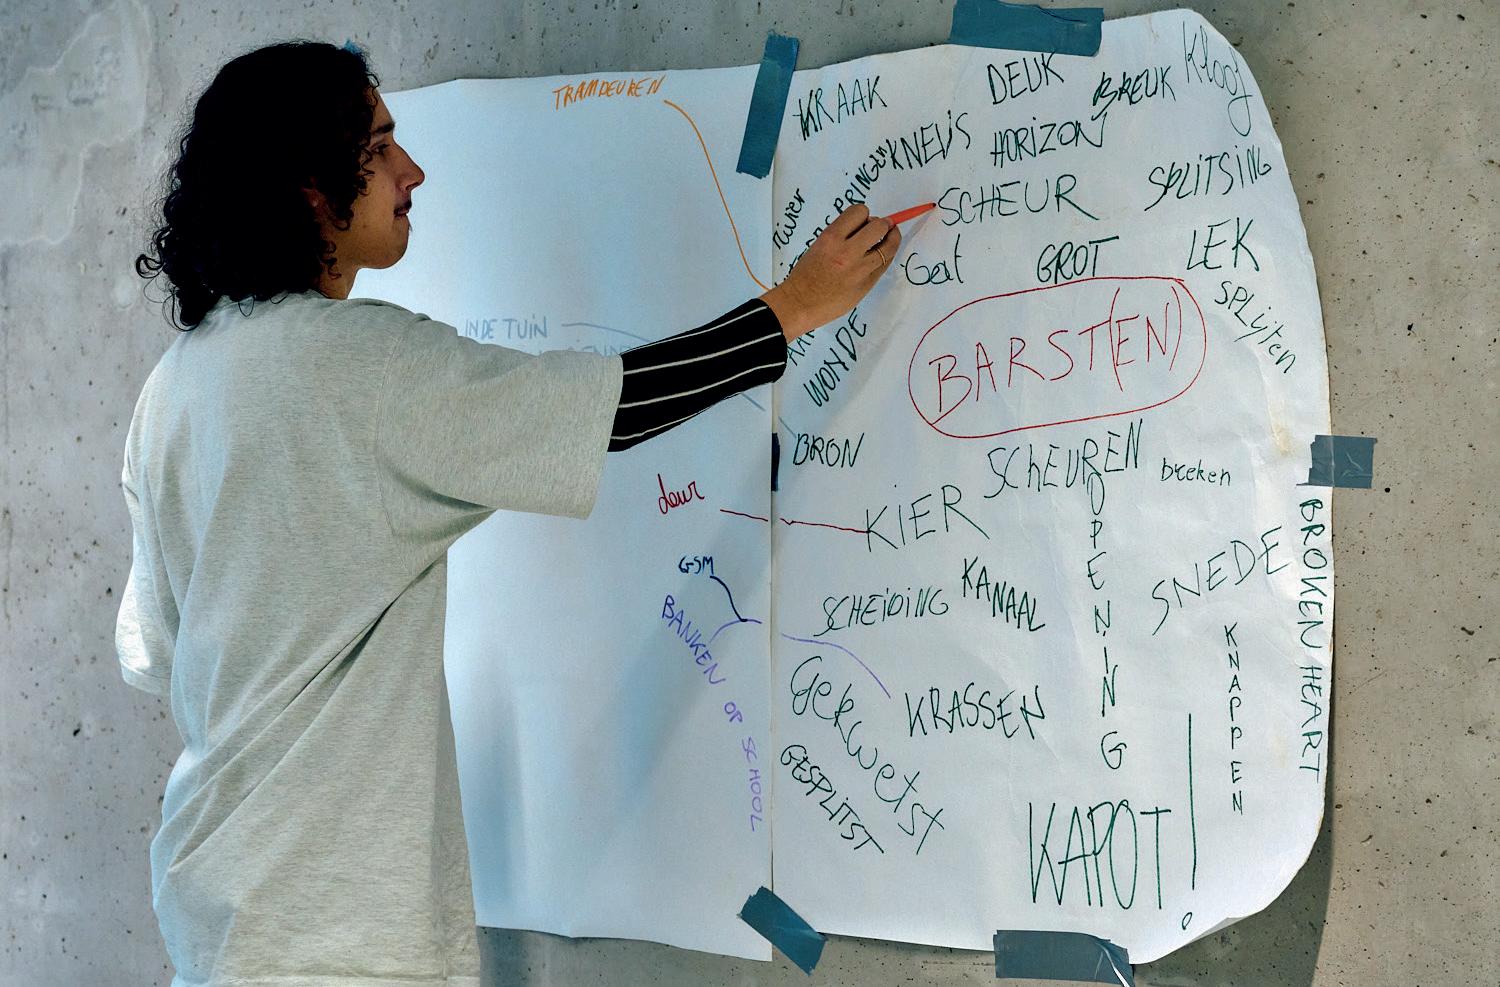 TRAMDEUREN
IN DE TUIN
deur
GSM
BANKEN OP SCHOOL
KRAAK
DEUK
BREUK
Kloof
KNEVIS
HORIZON
SPLITSING
rivier
SCHEUR
GROT
LEK
SPLijten
BARST(EN)
WONDE
BRON
SCHEUREN
breken
KIER
OPENING
SNEDE
BROKEN HEART
SCHEIDING
KANAAL
KNAPPEN
Gekwetst
KRASSEN
GESPLITST
KAPOT!